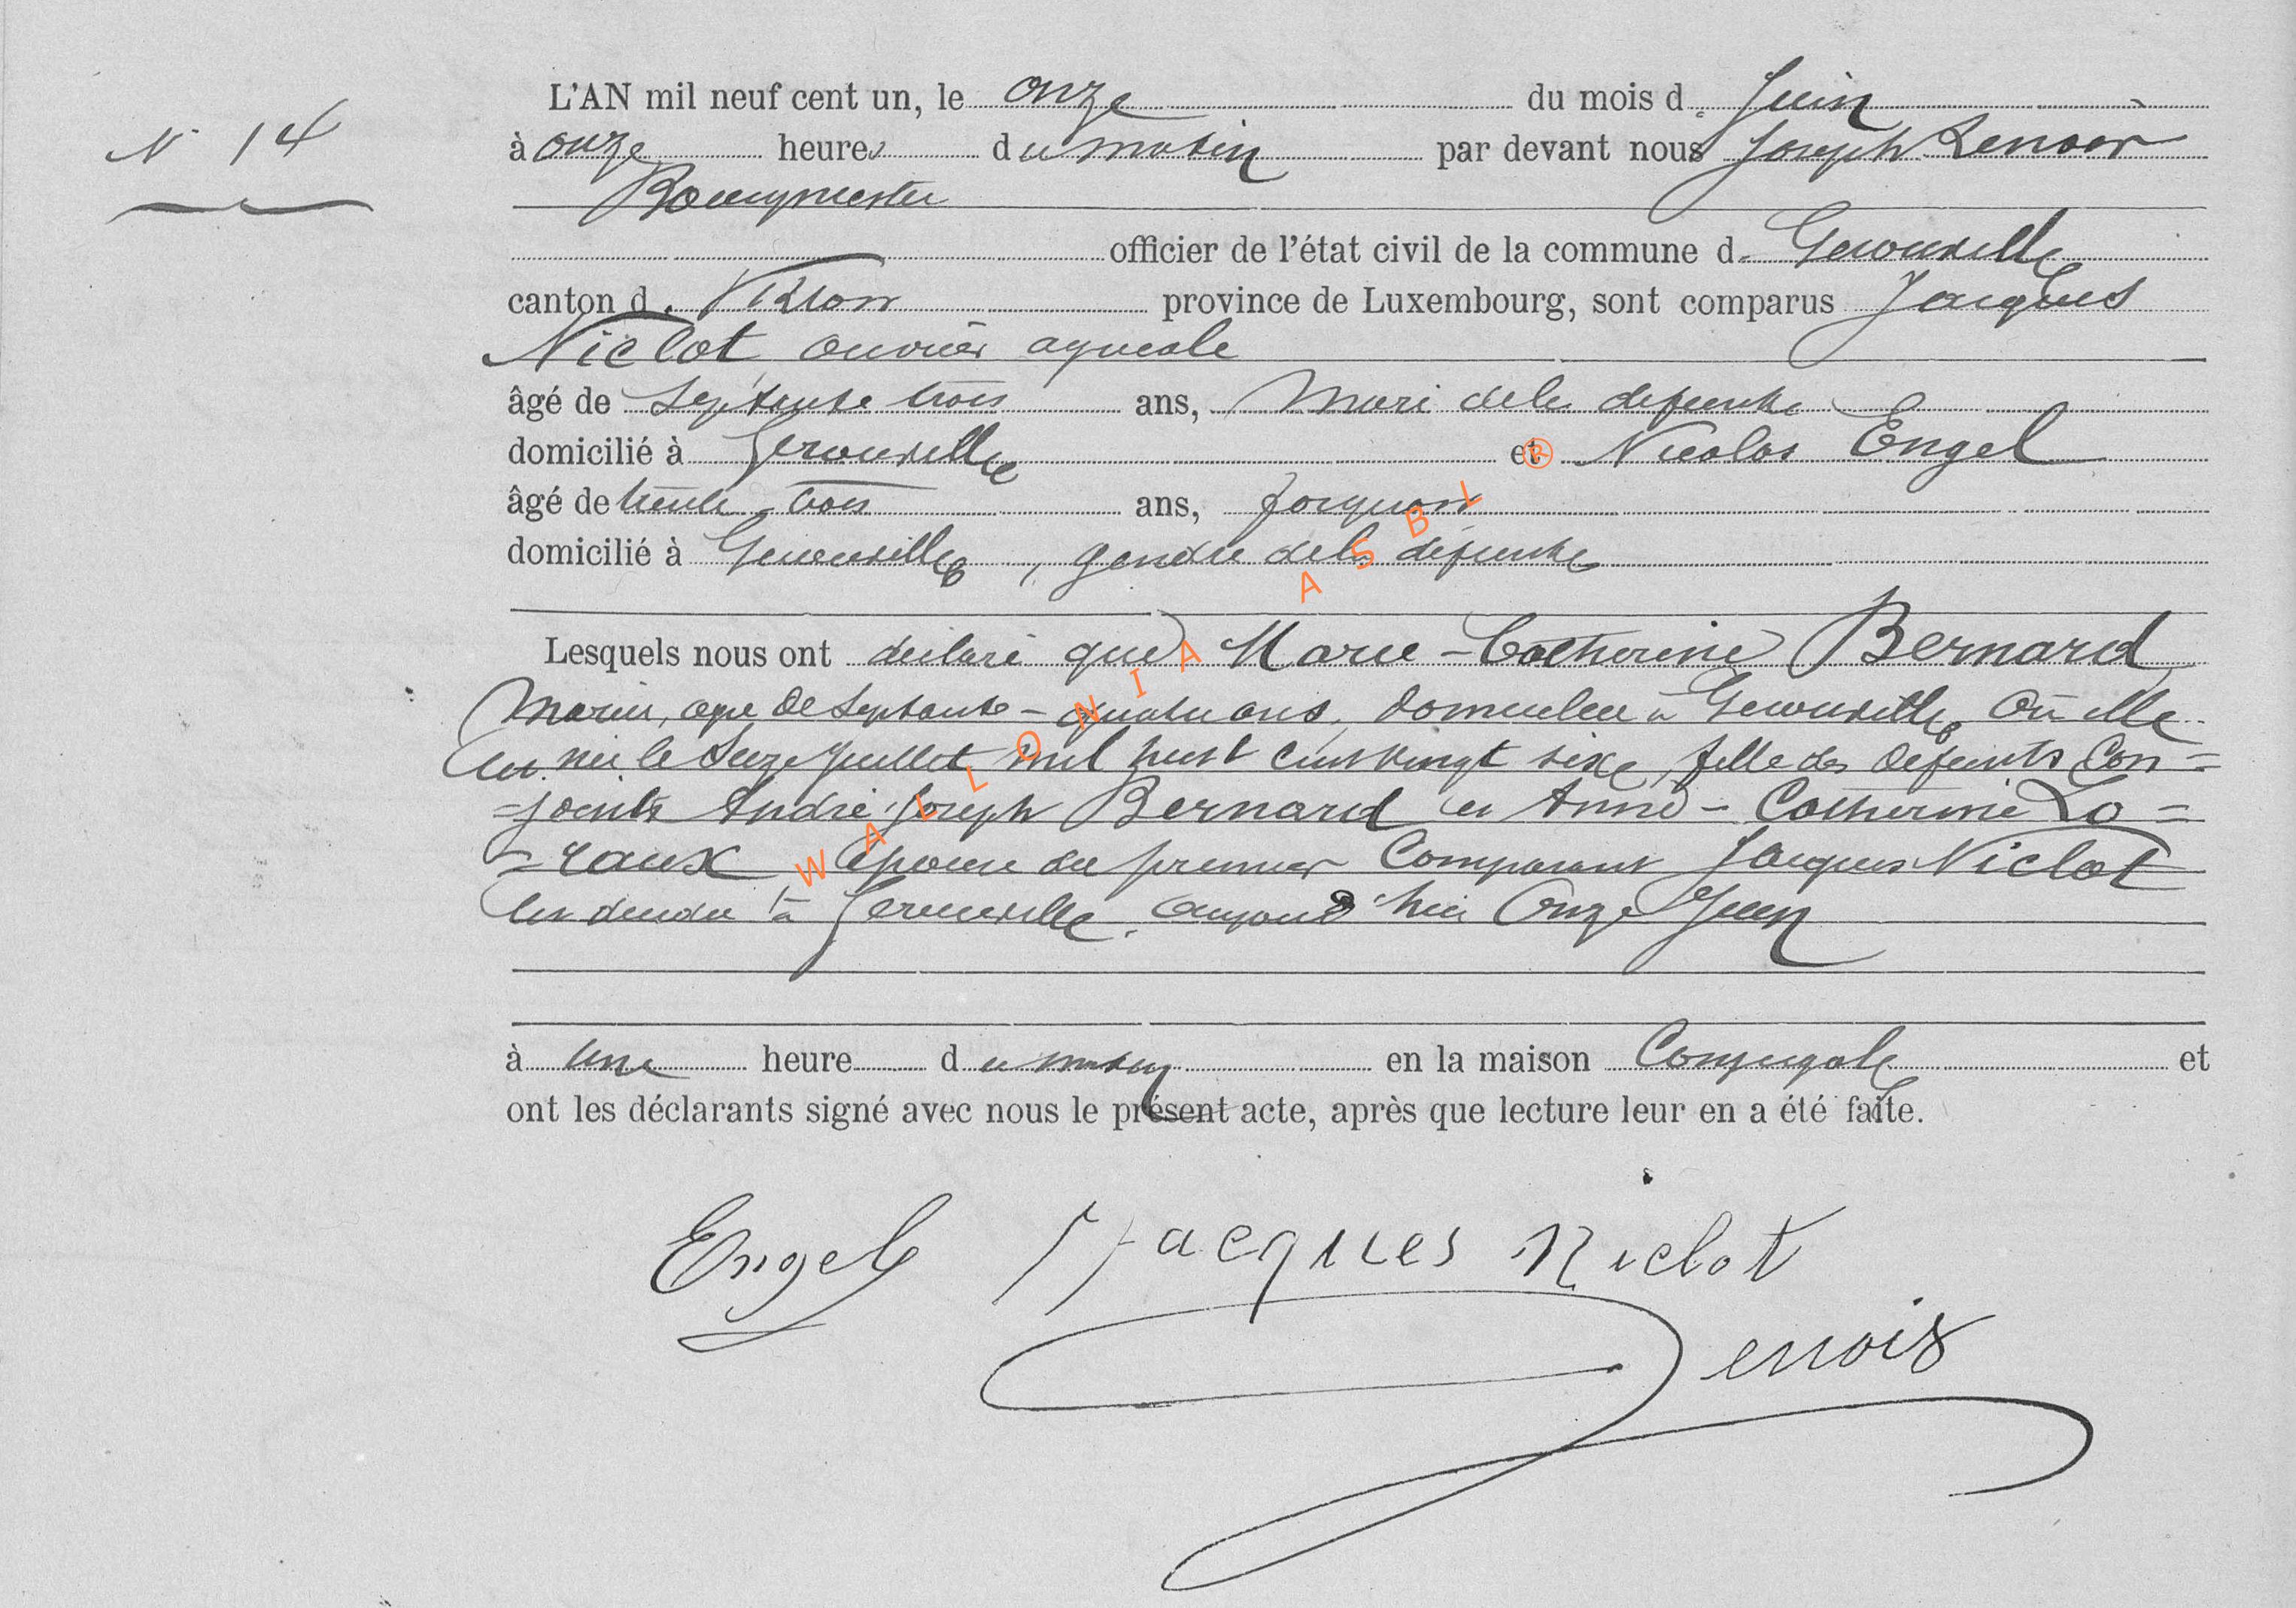 L'AN mil neuf cent un, le onze du mois de Juin
N° 14
à onze heures du matin par devant nous Joseph Lenoir
Bourgmestre
officier de l'état civil de la commune de Gerouville
canton de Virton province de Luxembourg, sont comparus Jacques
Niclot ouvrier agricole
âgé de septante trois ans, mari de la defunte
domicilié à Gerouville et Nicolas Engel
âgé de trente-trois ans, forgeron
domicilié à Gerouville, gendre de la défunte
Lesquels nous ont déclaré que Marie-Catherine Bernard
âgée de septante-quatre ans, domiciliée à Gerouville où elle
est née le seize juillet mil huit cent vingt sixe, fille des défunts con=
=joints André Joseph Bernard et Anne-Catherine Lo=
=raux épouse du premier comparant Jacques Niclot
est décédée à Gerouville, aujourd'hui onze Juin
à une heure du matin en la maison conjugale et
ont les déclarants signé avec nous le présent acte, après que lecture leur en a été faite.
Engel Jacques Niclot
Lenoir
WALLONIA ASBL ®